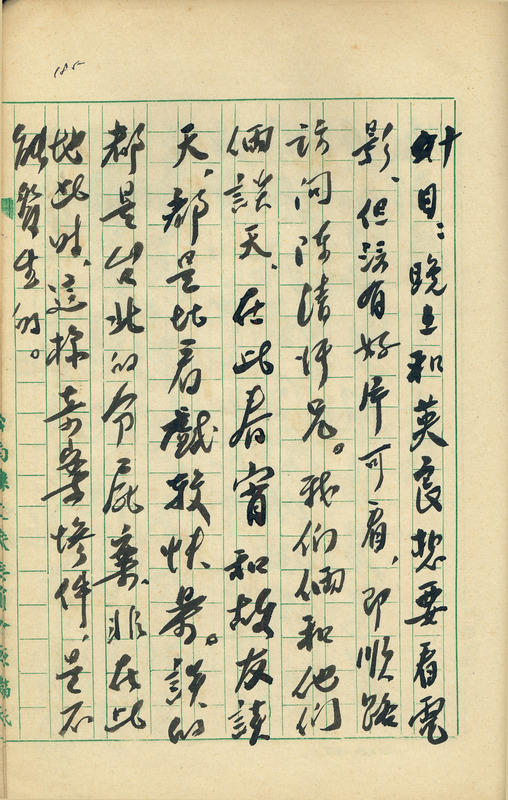 185
廿日：晚上和英良想要看電
影、但沒有好片可看，即順路
訪問陳清汗兄。我们倆和他们
倆談天、在此春宵和故友談
天，都是比看戲較快界。談的
都是台北的分屍案、非在此
地此时、這樣奇案慘件，是不
能發生的。